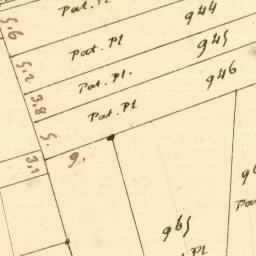 Pat. Pl
944
5,6
Pat. Pl
945
5,2
Pat. Pl.
946
3,8
Pat. Pl
5.
3,1
9.
965
Pl